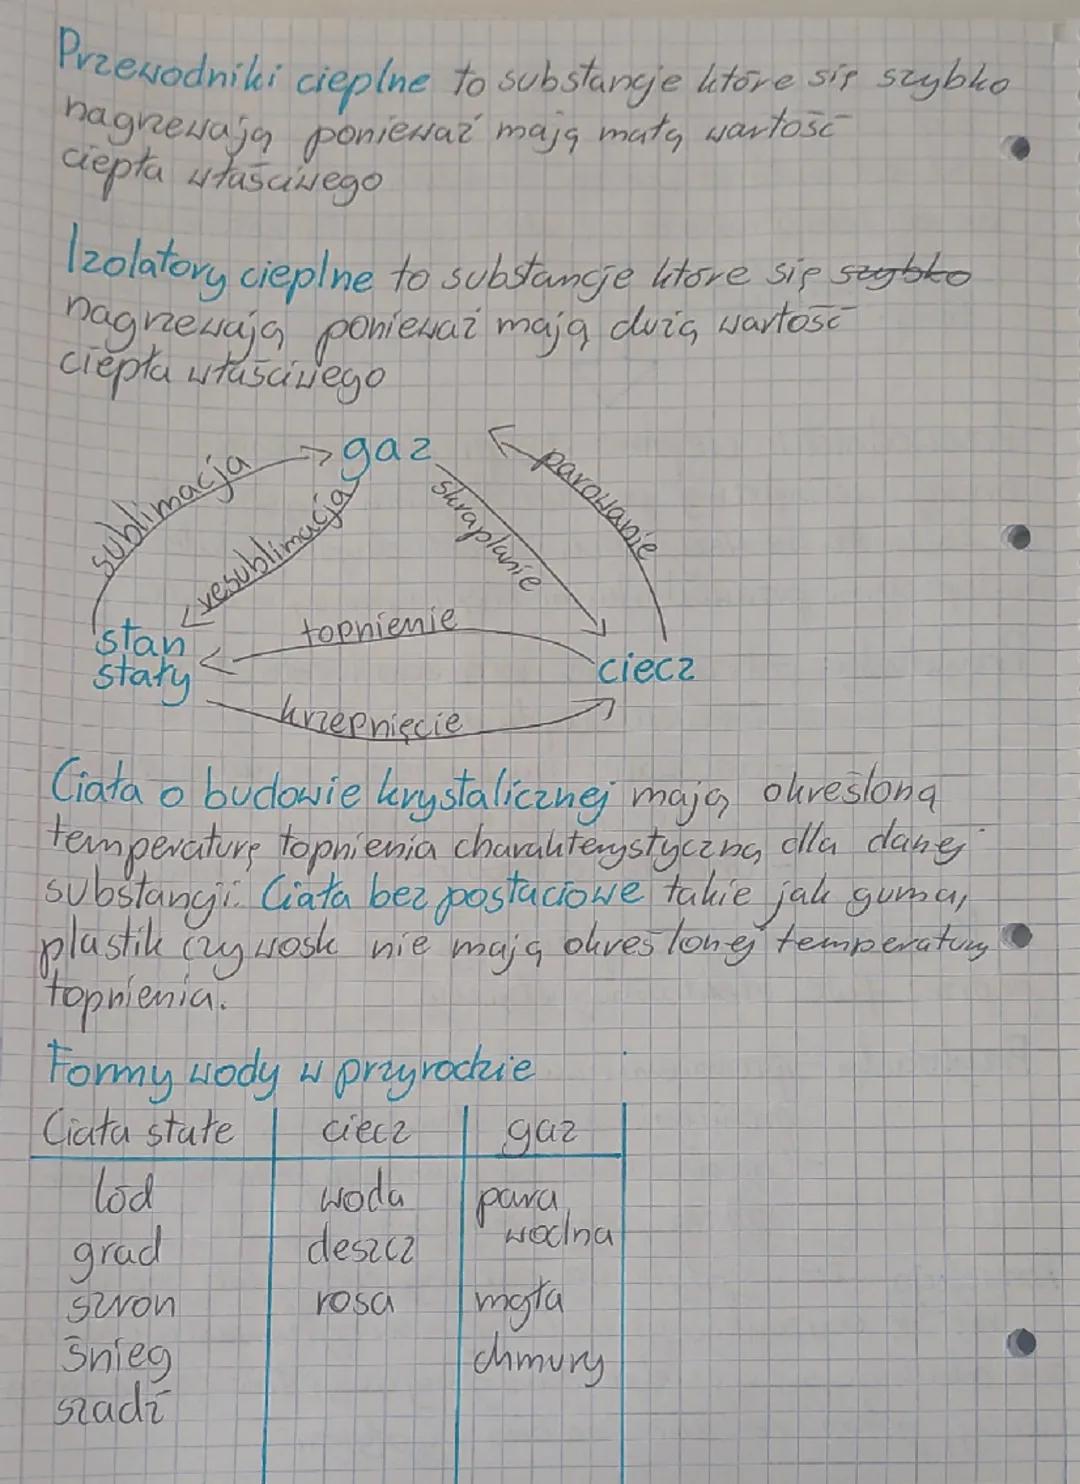 Przewodniki cieplne to substancje które się szybko
nagrzewają ponieważ mają małą wartość
ciepła właściwego
Izolatory cieplne to substancje które się szybko
nagrzewają ponieważ mają dużą wartość
ciepła właściwego
gaz
sublimacja
resublimacja
skraplanie
parowanie
topnienie
stan
stały
ciecz
krzepnięcie
Ciała o budowie krystalicznej mają określoną
temperaturę topnienia charakterystyczną dla danej
substancji. Ciała bez postaciowe takie jak guma,
plastik czy wosk nie mają określonej temperatury
topnienia.
Formy wody w przyrodzie
Ciała stałe ciecz gaz
lód woda para
wodna
grad deszcz
szron rosa mgła
śnieg chmury
szadź